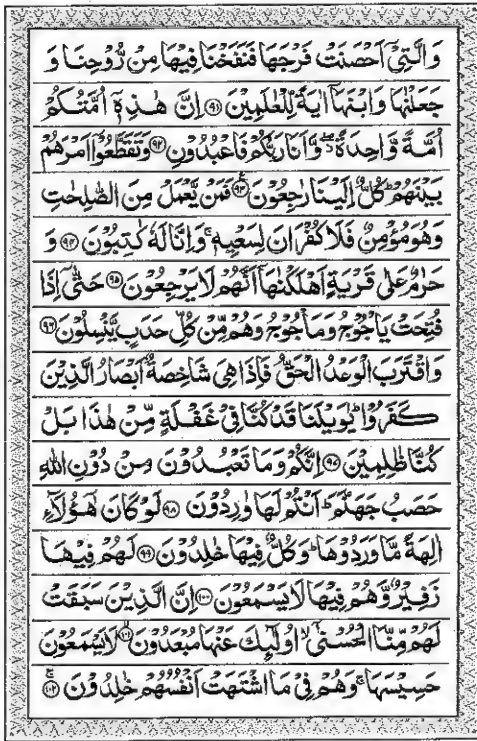 وَالَّتِیْۤ اَحْصَنَتْ فَرْجَهَا فَنَفَخْنَا فِیْهَا مِنْ رُّوْحِنَا وَ
جَعَلْنٰهَا وَابْنَهَاۤ اٰیَةً لِّلْعٰلَمِیْنَ ﴿۹۱﴾ اِنَّ هٰذِهٖۤ اُمَّتُكُمْ
اُمَّةً وَّاحِدَةً ۖ وَّاَنَا رَبُّكُمْ فَاعْبُدُوْنِ ﴿۹۲﴾ وَتَقَطَّعُوْۤا اَمْرَهُمْ
بَیْنَهُمْ ؕ كُلٌّ اِلَیْنَا رٰجِعُوْنَ ﴿۹۳﴾ فَمَنْ یَّعْمَلْ مِنَ الصّٰلِحٰتِ
وَهُوَ مُؤْمِنٌ فَلَا كُفْرَانَ لِسَعْیِهٖ ۚ وَاِنَّا لَهٗ كٰتِبُوْنَ ﴿۹۴﴾ وَ
حَرٰمٌ عَلٰی قَرْیَةٍ اَهْلَكْنٰهَاۤ اَنَّهُمْ لَا یَرْجِعُوْنَ ﴿۹۵﴾ حَتّٰۤی اِذَا
فُتِحَتْ یَاْجُوْجُ وَمَاْجُوْجُ وَهُمْ مِّنْ كُلِّ حَدَبٍ یَّنْسِلُوْنَ ﴿۹۶﴾
وَاقْتَرَبَ الْوَعْدُ الْحَقُّ فَاِذَا هِیَ شَاخِصَةٌ اَبْصَارُ الَّذِیْنَ
كَفَرُوْا ؕ یٰوَیْلَنَا قَدْ كُنَّا فِیْ غَفْلَةٍ مِّنْ هٰذَا بَلْ
كُنَّا ظٰلِمِیْنَ ﴿۹۷﴾ اِنَّكُمْ وَمَا تَعْبُدُوْنَ مِنْ دُوْنِ اللّٰهِ
حَصَبُ جَهَنَّمَ ؕ اَنْتُمْ لَهَا وٰرِدُوْنَ ﴿۹۸﴾ لَوْ كَانَ هٰۤؤُلَآءِ
اٰلِهَةً مَّا وَرَدُوْهَا ؕ وَكُلٌّ فِیْهَا خٰلِدُوْنَ ﴿۹۹﴾ لَهُمْ فِیْهَا
زَفِیْرٌ وَّهُمْ فِیْهَا لَا یَسْمَعُوْنَ ﴿۱۰۰﴾ اِنَّ الَّذِیْنَ سَبَقَتْ
لَهُمْ مِّنَّا الْحُسْنٰۤی ۙ اُولٰٓئِكَ عَنْهَا مُبْعَدُوْنَ ﴿۱۰۱﴾ لَا یَسْمَعُوْنَ
حَسِیْسَهَا ۚ وَهُمْ فِیْ مَا اشْتَهَتْ اَنْفُسُهُمْ خٰلِدُوْنَ ﴿۱۰۲﴾